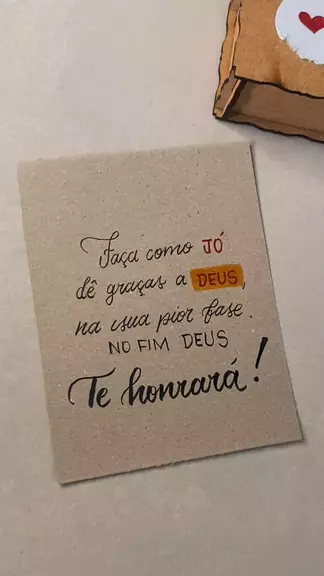 Faça como JÓ
dê graças a DEUS,
na sua pior fase.
NO FIM DEUS
Te honrará!